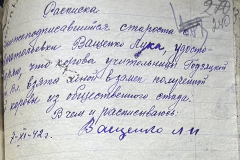 Расписка
нижеподписавшийся староста
Ващенко Лука, удосто-
что корова учительницы
взята мной взамен полученной
коровы из общественного стада.
В чем и расписываюсь
7-XI-42 г. Ващенко Л